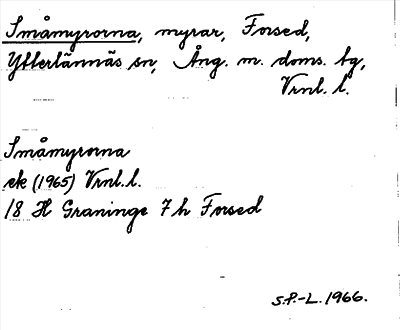 Småmyrorna, myrar, Forsed,
Ytterlännäs sn, Ång. m. doms. bg,
Vrnl. l.
Småmyrorna
ek (1965) Vrnl. l.
18 H Graninge 7 h Forsed
S.P.-L. 1966.